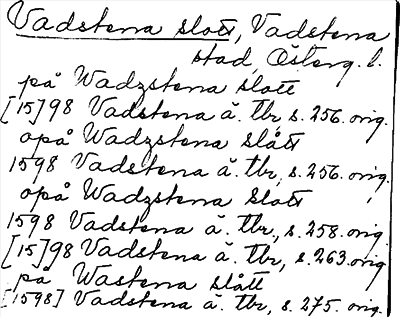 Vadstena slott, Vadstena
stad, Österg. l.
på Wadzstena slott
[15]98 Vadstena ä. tbr s. 256. orig.
opå Wadzstena slått
1598 Vadstena ä. tbr, s. 256. orig.
opå Wadzstena slott,
1598 Vadstena ä. tbr, s. 258. orig.
[15]98 Vadstena ä. tbr, s. 263. orig
på Wastena slått
[1598] Vadstena ä. tbr, s. 275. orig.